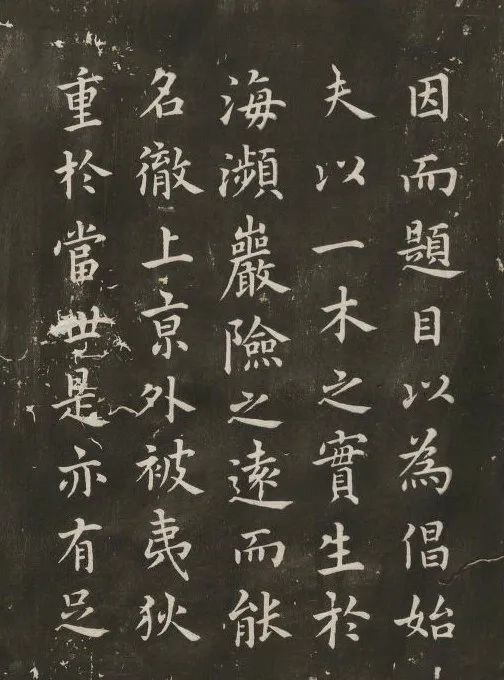 因而題目以為倡始
夫以一木之實生於
海瀕巖險之遠而能
名徹上京外被夷狄
重於當世是亦有足